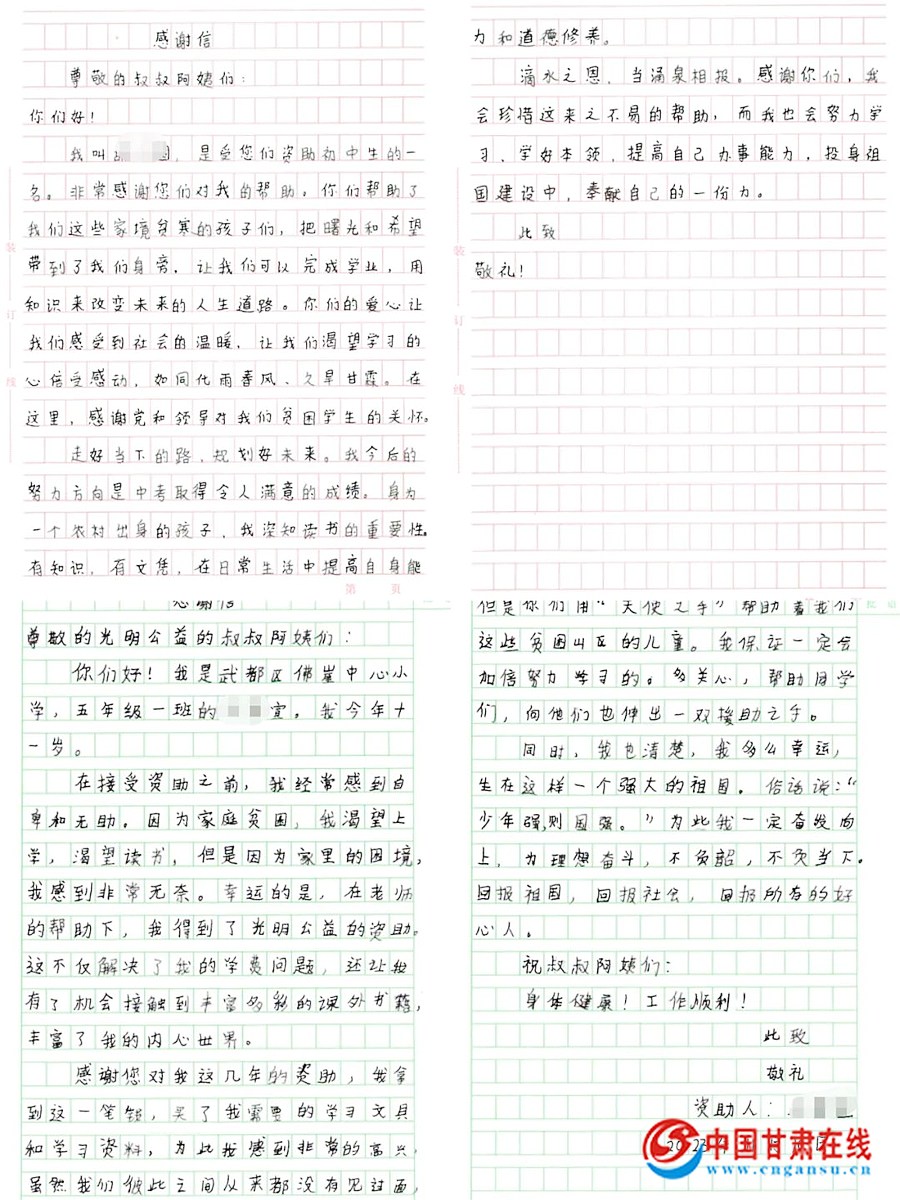 感谢信
尊敬的叔叔阿姨们：
你们好！
我叫，是受您们资助初中生的一
名。非常感谢您们对我的帮助。你们帮助了
我们这些家境贫寒的孩子们，把曙光和希望
带到了我们身旁，让我们可以完成学业，用
知识来改变未来的人生道路。你们的爱心让
我们感受到社会的温暖，让我们渴望学习的
心倍受感动，如同化雨春风、久旱甘霖。在
这里，感谢党和领导对我们贫困学生的关怀。
走好当下的路，规划好未来。我今后的
努力方向是中考取得令人满意的成绩。身为
一个农村出身的孩子，我深知读书的重要性。
有知识，有文凭，在日常生活中提高自身能
装
订
线
第 页
力和道德修养。
滴水之恩，当涌泉相报。感谢你们，我
会珍惜这来之不易的帮助，而我也会努力学
习，学好本领，提高自己办事能力，投身祖
国建设中，奉献自己的一份力。
此致
敬礼！
装
订
线
感谢信
尊敬的光明公益的叔叔阿姨们：
你们好！我是武都区佛崖中心小
学，五年级一班的宣。我今年十
一岁。
在接受资助之前，我经常感到自
卑和无助。因为家庭贫困，我渴望上
学，渴望读书，但是因为家里的困境，
我感到非常无奈。幸运的是，在老师
的帮助下，我得到了光明公益的资助。
这不仅解决了我的学费问题，还让我
有了机会接触到丰富多彩的课外书籍，
丰富了我的内心世界。
感谢您对我这几年的资助，我拿
到这一笔钱，买了我需要的学习文具
和学习资料，为此我感到非常的高兴，
虽然我们彼此之间从来都没有见过面，
但是你们用“天使之手”帮助着我们
这些贫困山区的儿童。我保证一定会
加倍努力学习的。多关心，帮助同学
们，向他们也伸出一双援助之手。
同时，我也清楚，我多么幸运，
生在这样一个强大的祖国。俗话说：“
少年强，则国强。”为此我一定奋发向
上，为理想奋斗，不负韶，不负当下。
回报祖国，回报社会，回报所有的好
心人。
祝叔叔阿姨们：
身体健康！工作顺利！
此致
敬礼
资助人：
2023
中国甘肃在线
www.cngansu.cn